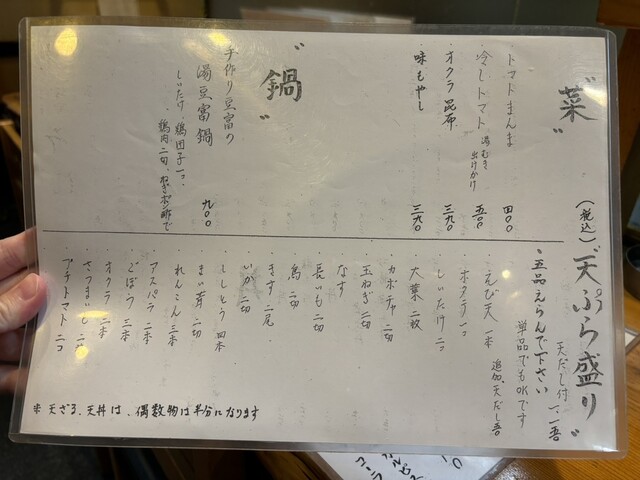 "菜"
・トマトまんま 四〇〇
・冷しトマト 湯むき 出汁かけ 五〇〇
・オクラ昆布 三九〇
・味もやし 三九〇
"鍋"
手作り豆富の
湯豆富鍋 九〇〇
しいたけ、鶏団子一コ、
鶏肉二切、ねぎポン酢で
(税込)
"天ぷら盛り"
天だし付
・五品えらんで下さい
単品でもOKです
追加、天だし
・えび天 一本
・ホタテ 一コ
・しいたけ 二コ
・大葉 二枚
・カボチャ 二切
・玉ねぎ 二切
・なす
・長いも 二切
・鳥 二切
・きす 一尾
・いか 二切
・ししとう 四本
・まい茸 二切
・れんこん 三本
・アスパラ 二本
・ごぼう 三本
・オクラ 二本
・さつまいも 二切
・プチトマト 二コ
※ 天ざる、天丼は、偶数物は半分になります